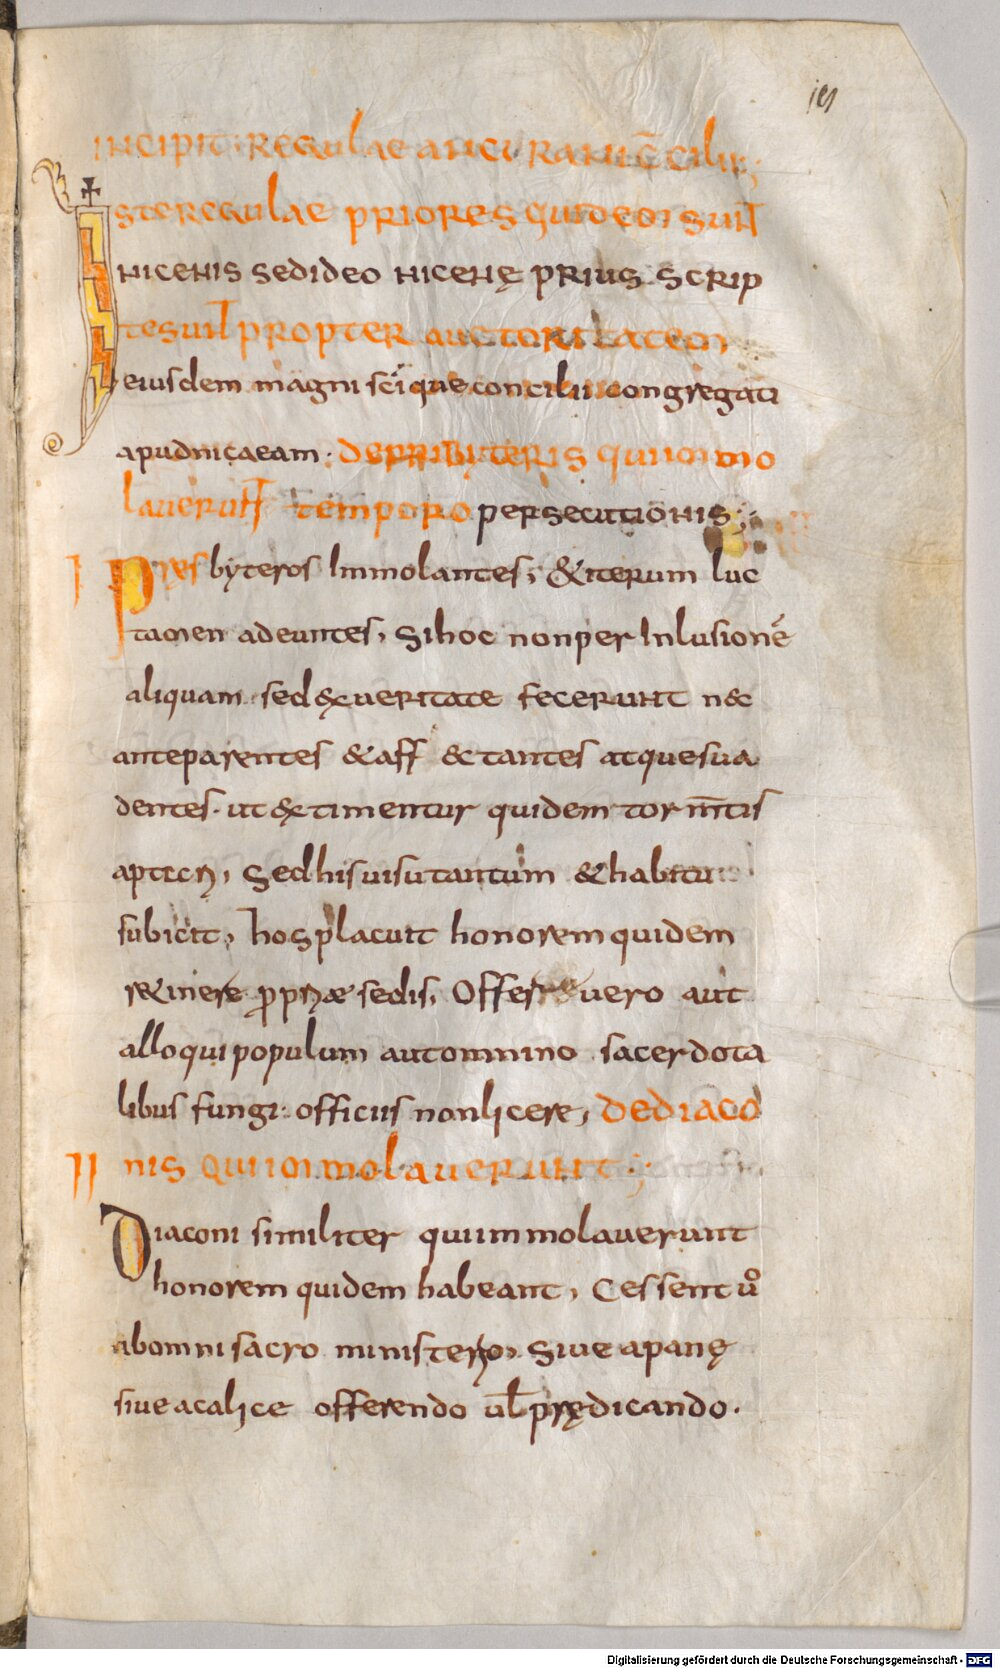 191
INCIPIT REGULAE ANCURANI CCILII;
ISTE REGULAE PRIORES QUIDEM SUNT
NICENIS SED IDEO NICENĘ PRIUS SCRIP
TE SUNT PROPTER AUCTORITATEM
eiusdem magni scique concilii congregati
apud niçaeam. DE PRBITERIS QUI IMMO
LAVERUNT TEMPORO PERSECUTIONIS;
I PRESbyteros Immolantes; & iterum luc
tamen adeuntes, Si hoc non per Inlusionē
aliquam sed & ueritate fecerunt nec
ante parentes & aff & tantes atque sua
dentes. ut & timentur quidem tormtis
Sed his uisu tantum & habitu
subicit, hos placuit honorem quidem
r&inere sedis, Offerre uero aut
alloqui populum aut omnino sacerdota
libus fungi officiis non licere, DE DIACO
II NIS QUI IMMOLAVERUNT;
Diaconi similiter qui immolauerunt
honorem quidem habeant, Cessent uo
ab omni sacro ministerio, Siue a panę
siue a calice offerendo ul prędicando.
Digitalisierung gefördert durch die Deutsche Forschungsgemeinschaft - DFG